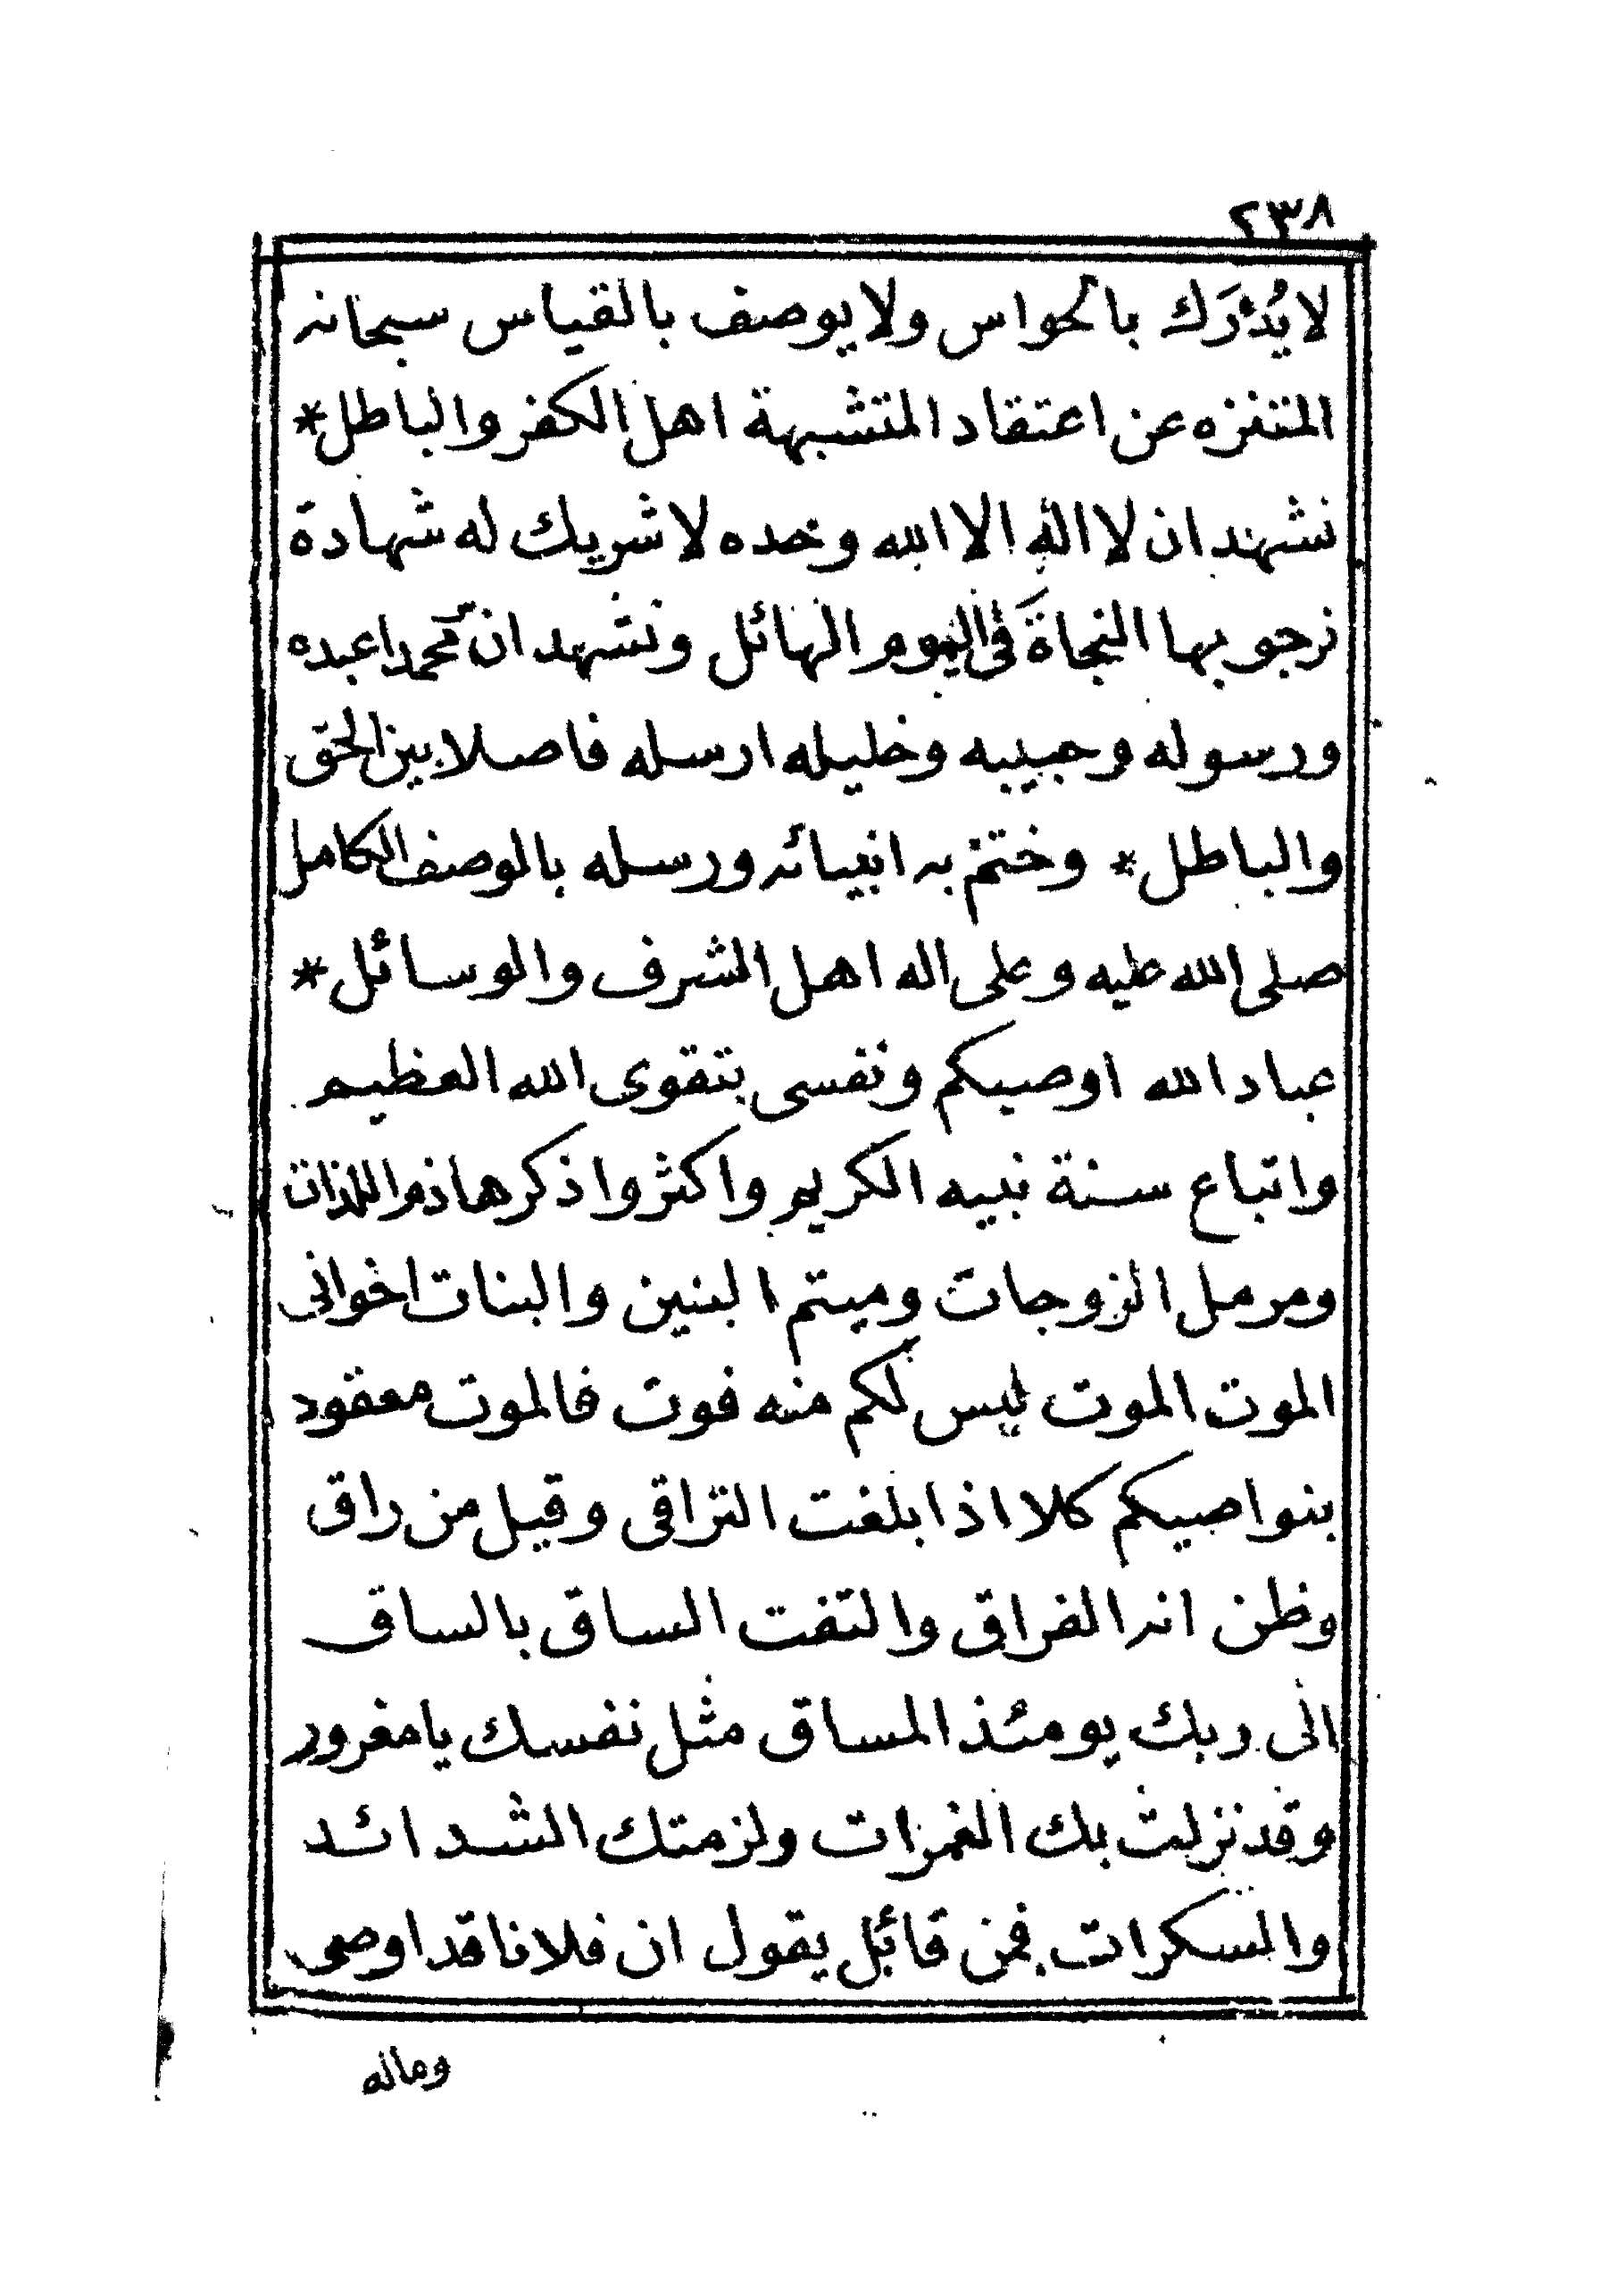 ٢٣٨
لا يُدْرَك بالحواس ولا يوصف بالقياس سبحانه
المتنزه عن اعتقاد المتشبهة اهل الكفر والباطل *
نشهد ان لا اله الا الله وحده لا شريك له شهادة
نرجو بها النجاةَ فى اليوم الهائل ونشهد ان محمدا عبده
ورسوله وحبيبه وخليله ارسله فاصلا بين الحق
والباطل * وختم به انبيائه ورسله بالوصف الكامل
صلى الله عليه وعلى اله اهل الشرف والوسائل *
عباد الله اوصيكم ونفسى بتقوى الله العظيم
واتباع سنة نبيه الكريم واكثروا ذكر هاذم اللذات
ومرمل الزوجات وميتم البنين والبنات اخوانى
الموت الموت ليس لكم منه فوت فالموت معقود
بنواصيكم كلا اذا بلغت التراقى وقيل من راق
وظن انه الفراق والتفت الساق بالساق
الى ربك يومئذ المساق مثل نفسك يا مغرور
وقد نزلت بك الغمرات ولزمتك الشدائد
والسكرات فمن قائل يقول ان فلانا قد اوصى
وماله